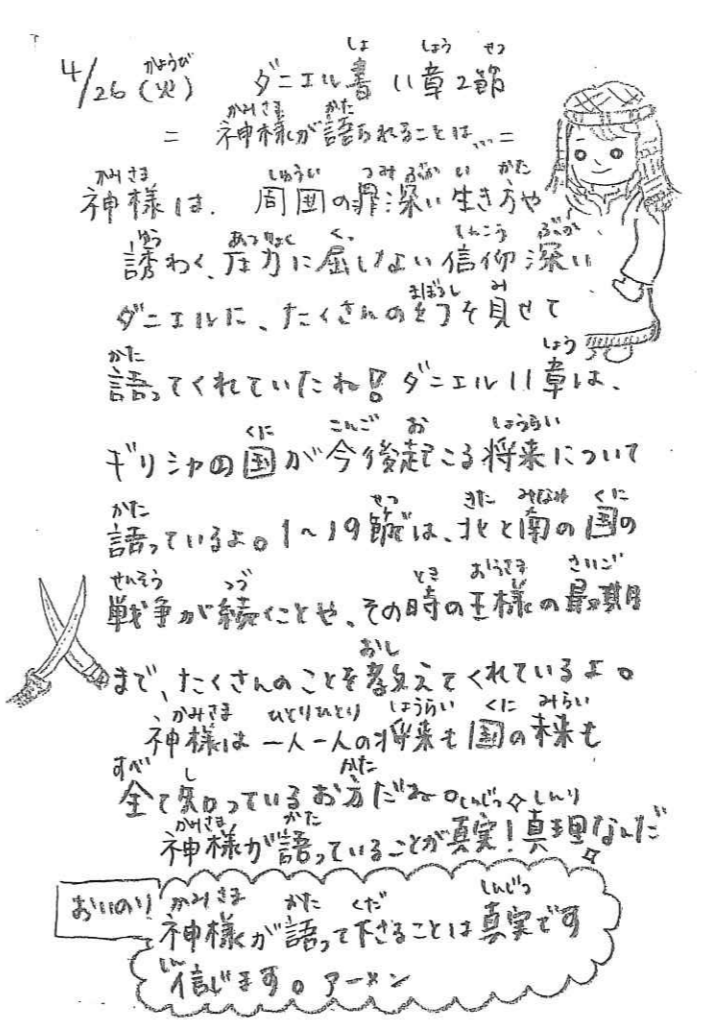 4/26(火) ダニエル書11章2節
=神様が語られることは…=
神様は、周囲の罪深い生き方や
誘わく、圧力に屈しない信仰深い
ダニエルに、たくさんの幻を見せて
語ってくれていたね!ダニエル11章は、
ギリシャの国が今後起こる将来について
語っているよ。1~19節では、北と南の国の
戦争が続くことや、その時の王様の最期
まで、たくさんのことを教えてくれているよ。
神様は一人一人の将来も国の未来も
全て知っているお方だね。
神様が語っていることが真実!真理なんだ
おいのり
神様が語って下さることは真実です
信じます。アーメン